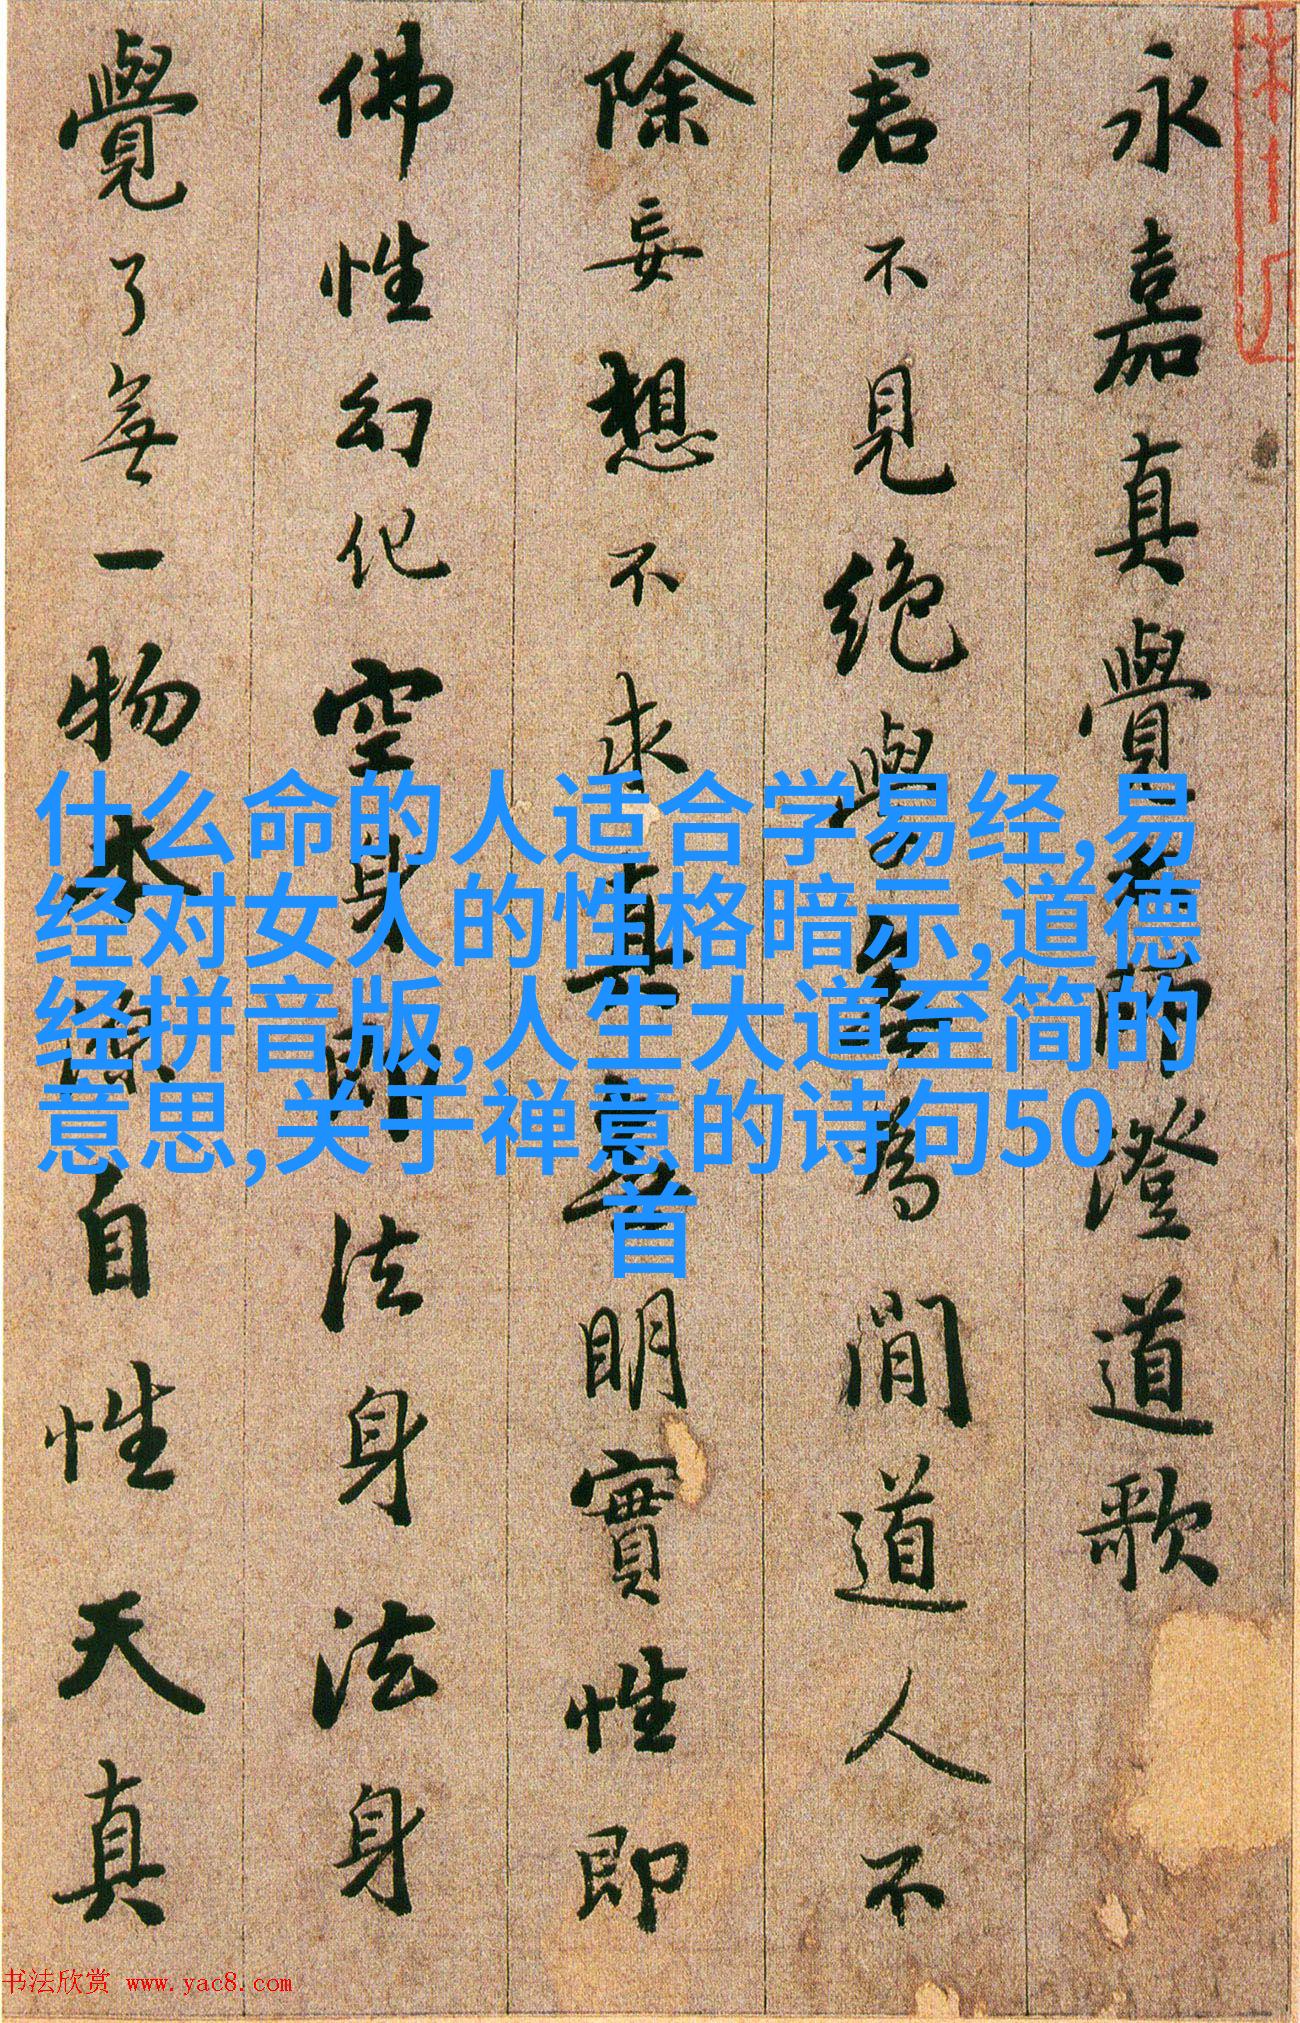 永嘉真覺師澄道歌
君不見絕學無為閒道人不
除妄想不求真無明實性即
佛性幻化空身即法身法身
覺了無一物本源自性天真
什么命的人适合学易经,易
经对女人的性格暗示,道德
经拼音版,人生大道至简的
意思,关于禅意的诗句50
首
书法欣赏 www.yac8.com